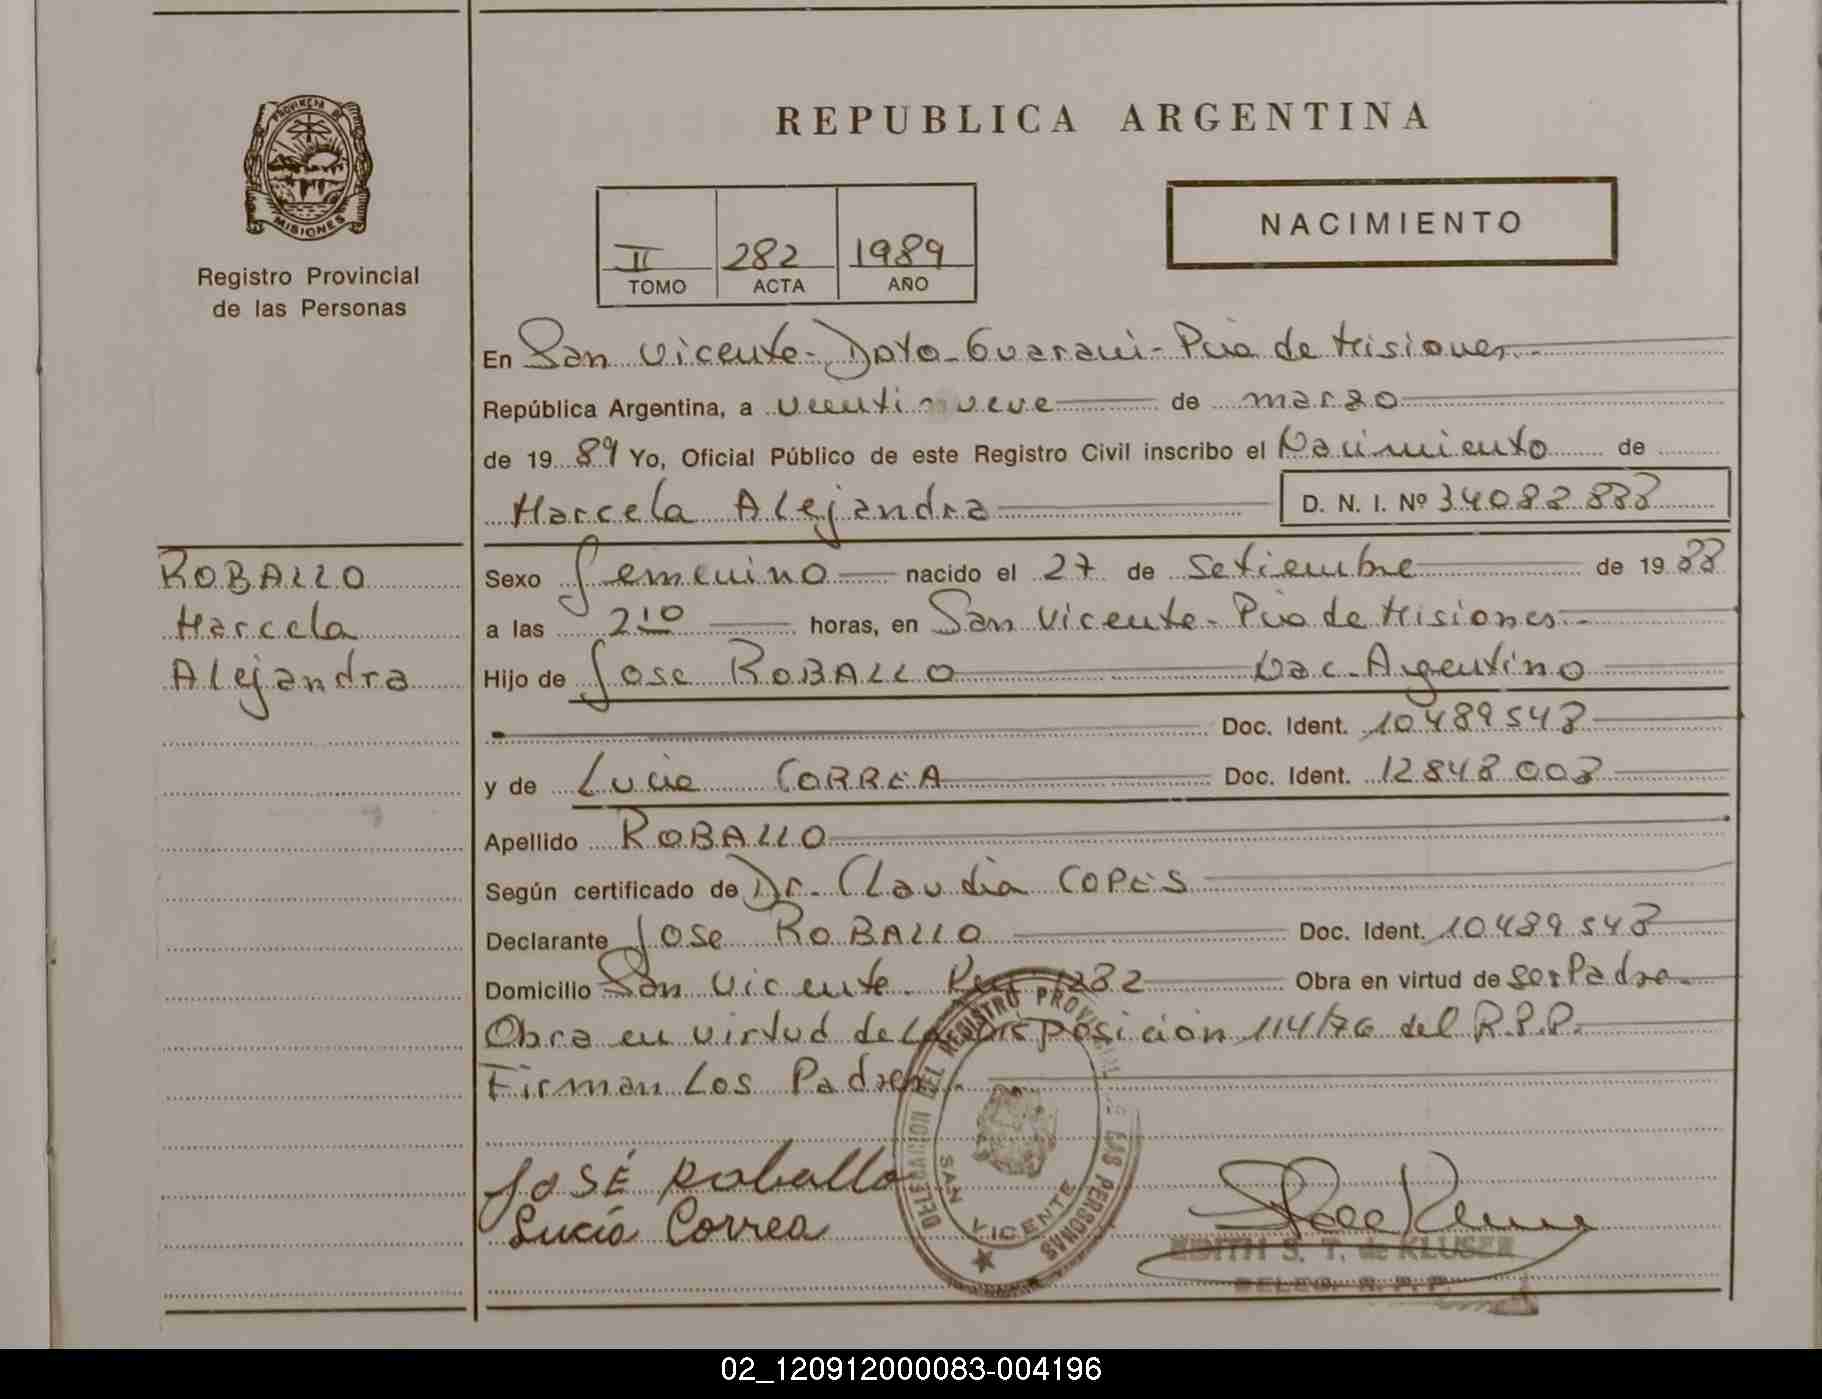 PROVINCIA DE
MISIONES
Registro Provincial
de las Personas
REPUBLICA ARGENTINA
NACIMIENTO
II 282 1989
TOMO ACTA AÑO
En San Vicente - Dpto - Guarani - Pcia de Misiones.-
República Argentina, a veinti nueve de marzo
de 19 89 Yo, Oficial Público de este Registro Civil inscribo el Nacimiento de
Marcela Alejandra D. N. I. Nº 34082888
ROBALLO
Marcela
Alejandra
Sexo femenino nacido el 27 de Setiembre de 19 88
a las 2:10 horas, en San Vicente - Pcia de Misiones.-
Hijo de Jose ROBALLO Nac. Argentino
Doc. Ident. 10489548
y de Lucia CORREA Doc. Ident. 12848008
Apellido ROBALLO
Según certificado de Dr. Claudia COPES
Declarante Jose ROBALLO Doc. Ident. 10489548
Domicilio San Vicente 1282 Obra en virtud de ser Padre.
Obra en virtud de la Disposición 114/76 del R.P.P.
Firman Los Padres.
DELEGACION DEL REGISTRO PROVINCIAL DE LAS PERSONAS
SAN VICENTE
JOSÉ Roballo
Lucía Correa
EDITH S. T. de KLUSER
DELEG. R. P. P.
02_120912000083-004196